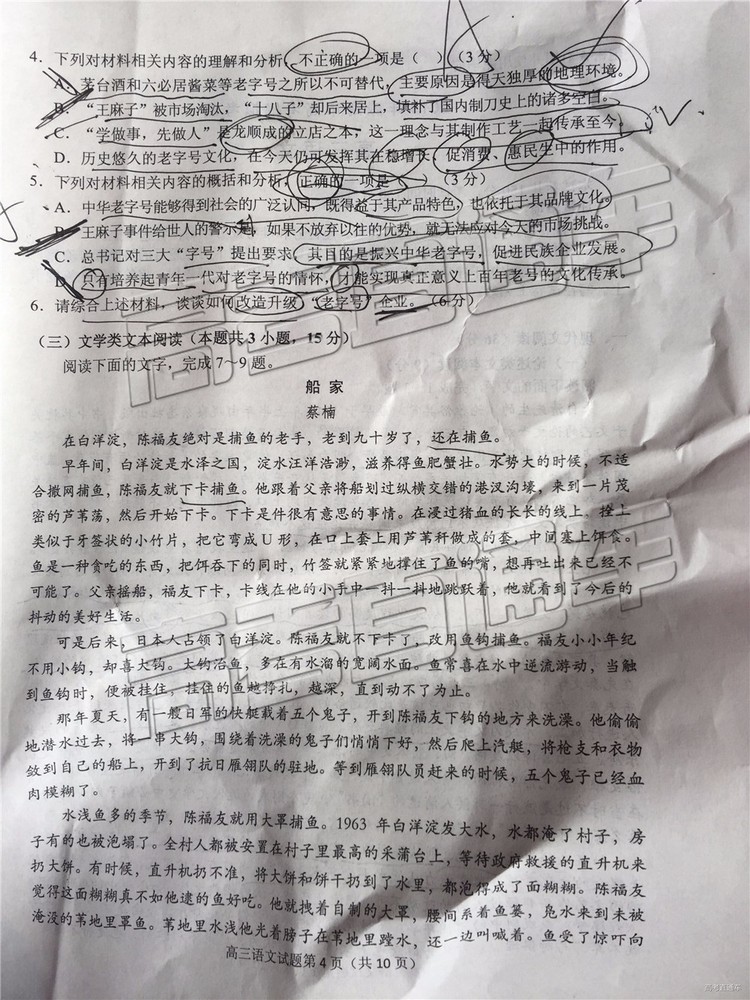 4. 下列对材料相关内容的理解和分析，不正确的一项是（ ）（3 分）
A. 茅台酒和六必居酱菜等老字号之所以不可替代，主要原因是得天独厚的地理环境。
B. “王麻子”被市场淘汰，“十八子”却后来居上，填补了国内制刀史上的诸多空白。
C. “学做事，先做人”是龙顺成的立店之本，这一理念与其制作工艺一起传承至今。
D. 历史悠久的老字号文化，在今天仍可发挥其在稳增长、促消费、惠民生中的作用。
5. 下列对材料相关内容的概括和分析，正确的一项是（ ）（3 分）
A. 中华老字号能够得到社会的广泛认同，既得益于其产品特色，也依托于其品牌文化。
B. 王麻子事件给世人的警示是，如果不放弃以往的优势，就无法应对今天的市场挑战。
C. 总书记对三大“字号”提出要求，其目的是振兴中华老字号，促进民族企业发展。
D. 只有培养起青年一代对老字号的情怀，才能实现真正意义上百年老号的文化传承。
6. 请综合上述材料，谈谈如何改造升级“老字号”企业。（6 分）
（三）文学类文本阅读（本题共 3 小题，15 分）
阅读下面的文字，完成 7～9 题。
船 家
蔡楠
在白洋淀，陈福友绝对是捕鱼的老手，老到九十岁了，还在捕鱼。
早年间，白洋淀是水泽之国，淀水汪洋浩渺，滋养得鱼肥蟹壮。水势大的时候，不适
合撒网捕鱼，陈福友就下卡捕鱼。他跟着父亲将船划过纵横交错的港汊沟壕，来到一片茂
密的芦苇荡，然后开始下卡。下卡是件很有意思的事情。在浸过猪血的长长的线上，拴上
类似于牙签状的小竹片，把它弯成 U 形，在口上套上用芦苇秆做成的套，中间塞上饵食。
鱼是一种贪吃的东西，把饵吞下的同时，竹签就紧紧地撑住了鱼的嘴，想再吐出来已经不
可能了。父亲摇船，福友下卡，卡线在他的小手中一抖一抖地跳跃着，他就看到了今后的
抖动的美好生活。
可是后来，日本人占领了白洋淀。陈福友就不下卡了，改用鱼钩捕鱼。福友小小年纪
不用小钩，却喜大钩。大钩治鱼，多在有水溜的宽阔水面。鱼常喜在水中逆流游动，当触
到鱼钩时，便被挂住，挂住的鱼越挣扎，越深，直到动不了为止。
那年夏天，有一艘日军的快艇载着五个鬼子，开到陈福友下钩的地方来洗澡。他偷偷
地潜水过去，将一串大钩，围绕着洗澡的鬼子们悄悄下好，然后爬上汽艇，将枪支和衣物
敛到自己的船上，开到了抗日雁翎队的驻地。等到雁翎队员赶来的时候，五个鬼子已经血
肉模糊了。
水浅鱼多的季节，陈福友就用大罩捕鱼。1963 年白洋淀发大水，水都淹了村子，房
子有的也被泡塌了。全村人都被安置在村子里最高的采蒲台上，等待政府救援的直升机来
扔大饼。有时候，直升机扔不准，将大饼和饼干扔到了水里，都泡得成了面糊糊。陈福友
觉得这面糊糊真不如他逮的鱼好吃。他就拽着自制的大罩，腰间系着鱼篓，凫水来到未被
淹没的苇地里罩鱼。苇地里水浅他光着膀子在苇地里蹚水，还一边叫喊着。鱼受了惊吓向
高三语文试题第 4 页（共 10 页）
高考直通车
高考直通车
高考直通车